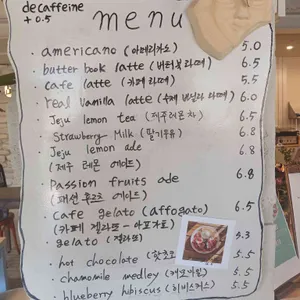 decaffeine
+0.5
menu
· americano (아메리카노) 5.0
· butter book latte (버터북라떼) 6.5
· cafe latte (카페라떼) 5.5
· real vanilla latte (수제 바닐라 라떼) 6.0
· Jeju lemon tea (제주레몬차) 6.5
· Strawberry Milk (딸기우유) 6.8
· Jeju lemon ade 6.8
(제주 레몬 에이드)
· Passion fruits ade 6.8
(패션 후르츠 에이드)
· Cafe gelato (affogato) 6.5
(카페 젤라또 - 아포가토)
· gelato (젤라또) 5.3
· hot chocolate 5.5
· chamomile medley (캐모마일) 5.5
· blueberry hibiscus (히비스커스) 5.5